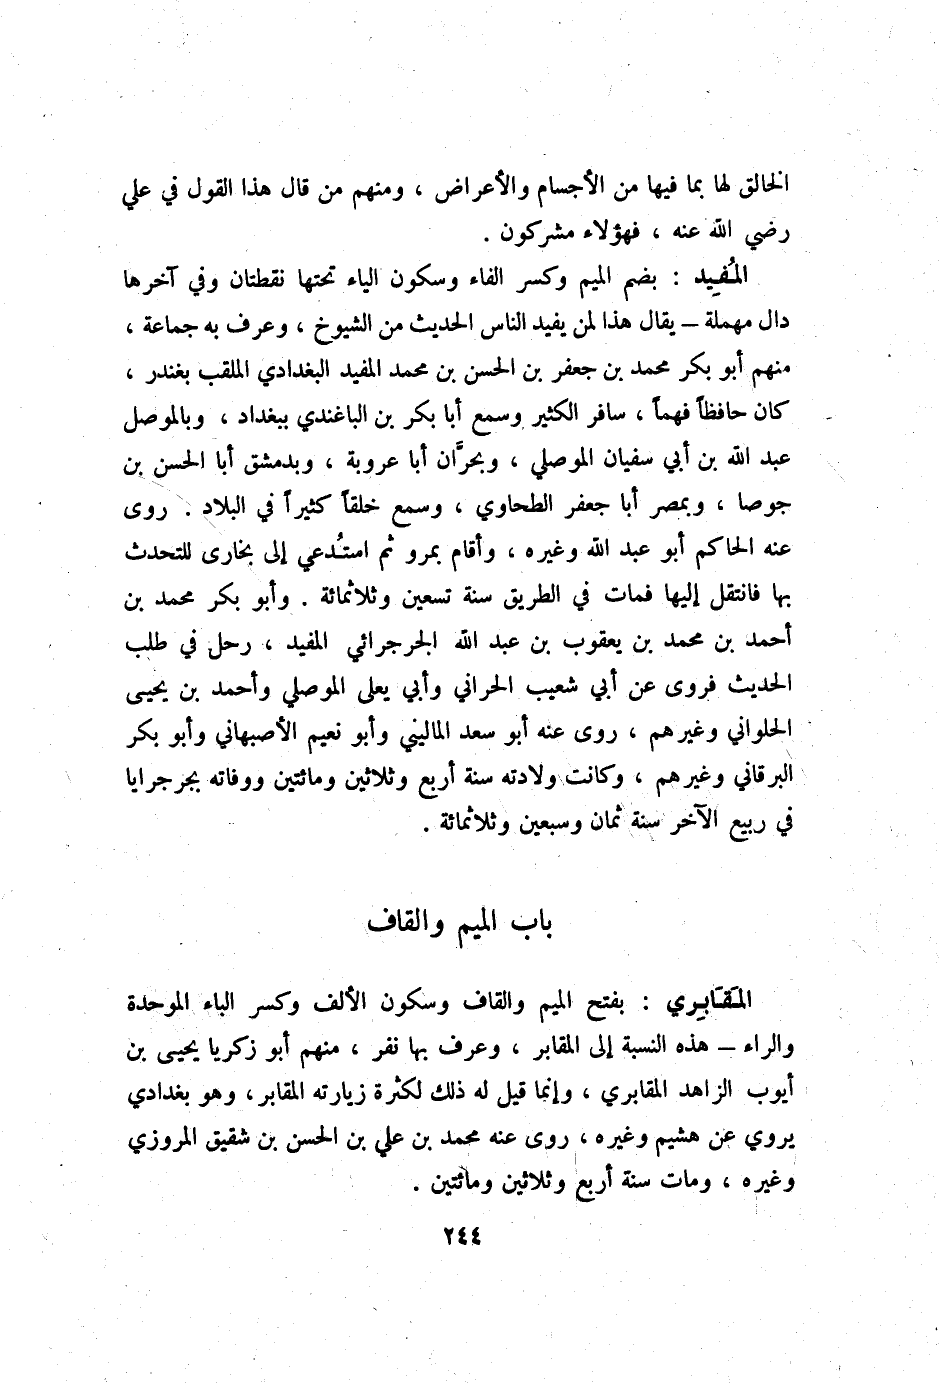 الخالق لها بما فيها من الأجسام والأعراض ، ومنهم من قال هذا القول في علي
رضي الله عنه ، فهؤلاء مشركون .
المُفِيد : بضم الميم وكسر الفاء وسكون الياء تحتها نقطتان وفي آخرها
دال مهملة – يقال هذا لمن يفيد الناس الحديث من الشيوخ ، وعرف به جماعة ،
منهم أبو بكر محمد بن جعفر بن الحسن بن محمد المفيد البغدادي الملقب بغندر ،
كان حافظاً فهماً ، سافر الكثير وسمع أبا بكر بن الباغندي ببغداد ، وبالموصل
عبد الله بن أبي سفيان الموصلي ، وبحرَّان أبا عروبة ، وبدمشق أبا الحسن بن
جوصا ، وبمصر أبا جعفر الطحاوي ، وسمع خلقاً كثيراً في البلاد . روى
عنه الحاكم أبو عبد الله وغيره ، وأقام بمرو ثم استُدعي إلى بخارى للتحدث
بها فانتقل إليها فمات في الطريق سنة تسعين وثلاثمائة . وأبو بكر محمد بن
أحمد بن محمد بن يعقوب بن عبد الله الجرجرائي المفيد ، رحل في طلب
الحديث فروى عن أبي شعيب الحراني وأبي يعلى الموصلي وأحمد بن يحيى
الحلواني وغيرهم ، روى عنه أبو سعد الماليني وأبو نعيم الأصبهاني وأبو بكر
البرقاني وغيرهم ، وكانت ولادته سنة أربع وثلاثين ومائتين ووفاته بجرجرايا
في ربيع الآخر سنة ثمان وسبعين وثلاثمائة .
باب الميم والقاف
المَقَابِري : بفتح الميم والقاف وسكون الألف وكسر الباء الموحدة
والراء – هذه النسبة إلى المقابر ، وعرف بها نفر ، منهم أبو زكريا يحيى بن
أيوب الزاهد المقابري ، وإنما قيل له ذلك لكثرة زيارته المقابر ، وهو بغدادي
يروي عن هشيم وغيره ، روى عنه محمد بن علي بن الحسن بن شقيق المروزي
وغيره ، ومات سنة أربع وثلاثين ومائتين .
٢٤٤